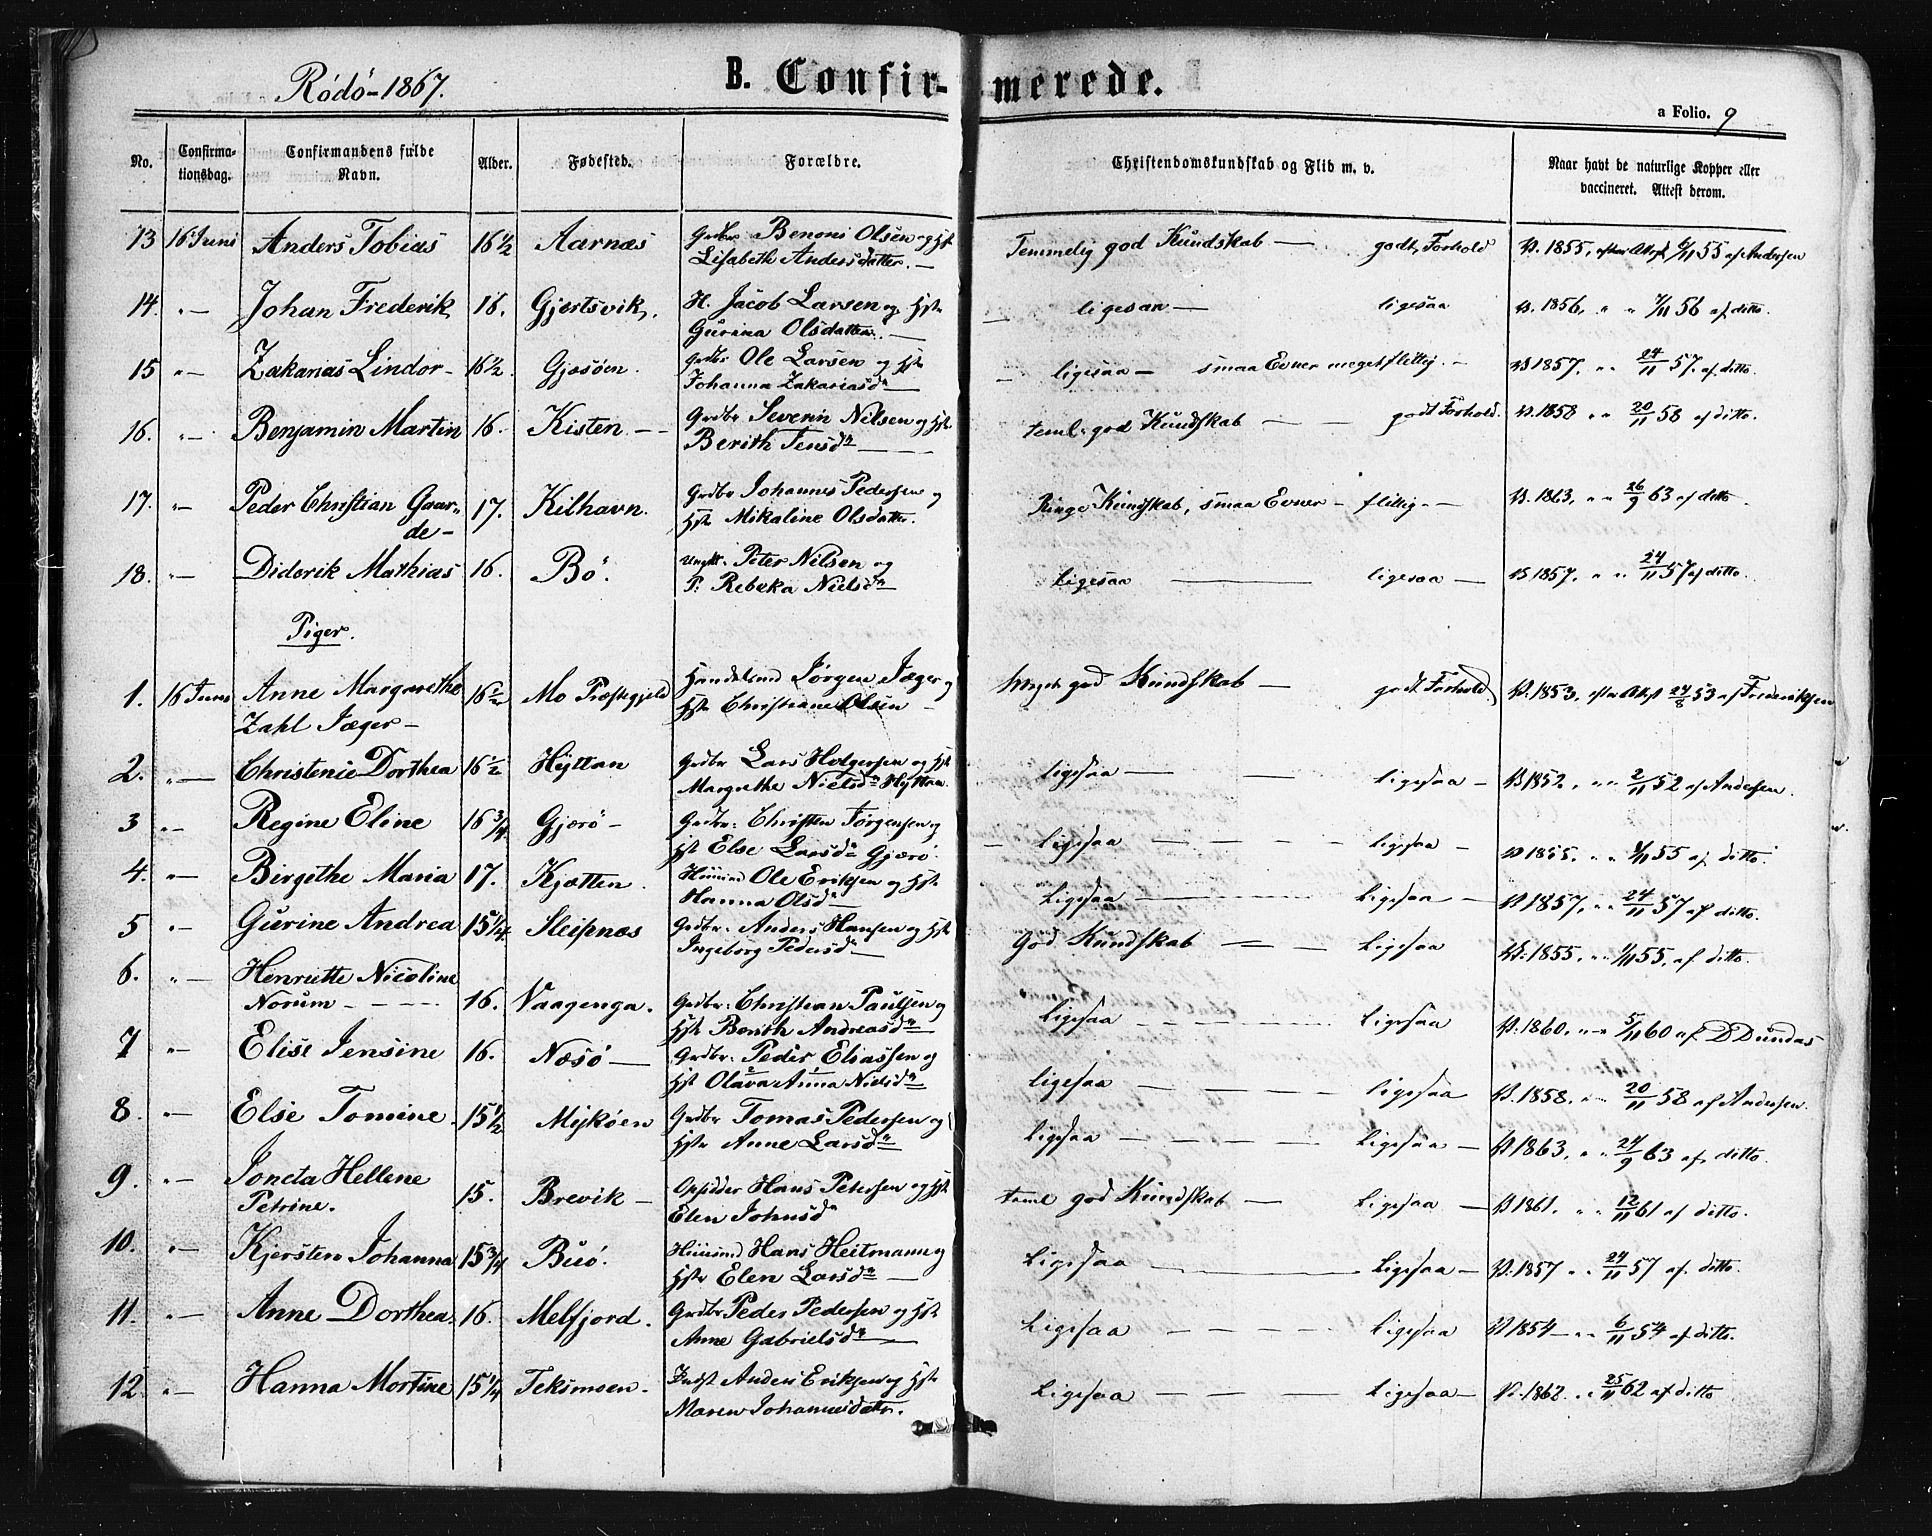 Rödö-1867.
B. Confirmerede.
a Folio. 9
No. | Confirmationsdag. | Confirmandens fulde Navn. | Alder. | Fødested. | Forældre. | Christendomskundskab og Flid m. v. | Naar havt de naturlige Kopper eller vaccineret. Attest derom.
13 16 Juni Anders Tobias 16 1/2 Aarnæs Grdbr Benoni Olsen og Hst Temmelig god Kundskab — godt Forhold V. 1855, efter Attest 6/11 55 af Andersen
Lisabeth Andersdatter. —
14. " — Johan Frederik 16. Gjertsvik. H. Jacob Larsen og Hst — ligesaa — ligesaa V. 1856, " " 7/11 56 af ditto.
Gurina Olsdatter. —
15 " — Zakarias Lindor - 16 1/2. Gjæsöen. Grdbr Ole Larsen og Hst — ligesaa — smaa Evner meget flittig. — V 1857. " " 24/11 57. af ditto.
Johanna Zakariasdr
16. " — Benjamin Martin 16. Kisten - - Grdbr Severin Nilsen og Hst teml. god Kundskab — — godt Forhold. V. 1858 " " 20/11 58 af ditto.
Berith Jensdr — — —
17. " — Peder Christian Gaar- 17. Kilhavn. Grdbr Johannes Pedersen og Ringe Kundskab, smaa Evner - flittig. - - V. 1863, " " 26/9 63 af ditto
de - Hst Mikaline Olsdatter.
18. " — Diderik Mathias 16. Bö. Ungk. Peter Nilsen og ligesaa — ligesaa — V 1857. " " 24/11 57 af ditto.
P. Rebeka Nielsdr
Piger.
1. 16 Juni Anne Margarethe 16 1/2 Mo Præstegjeld Handelsmd Jörgen Jæger og Meget god Kundskab — godt Forhold V. 1853. efter Attest 24/8 53 af Frederiksen
Zahl Jæger - Hst Christiane Olsen —
2. " — Christenie Dorthea 16 1/2 Hÿttan Grdbr Lars Holgersen og Hst ligesaa — — ligesaa — V 1852, " " 2/11 52 af Andersen.
Margrethe Nielsdr Hÿttan
3 " — Regine Eline 16 3/4. Gjerö - Grdbr. Christen Jörgensen og — ligesaa — — — ligesaa — V 1855. " " 1/11 55 af ditto.
Hst Else Larsdr Gjærö.
4. " — Birgithe Maria 17. Kjætten. Huusmd Ole Eriksen og Hst ligesaa — — — ligesaa — V 1857, " " 24/11 57 af ditto.
Hanna Olsdr
5 " — Gurine Andrea 15 1/4 Sleipnæs Grdbr. Anders Hansen og Hst God Kundskab — — ligesaa V. 1855, " " 1/11 55. af ditto.
Ingeborg Pedersdr
6. " — Henriette Nicoline
Norum - - - - 16. Vaagenga. Grdbr. Christian Paulsen og ligesaa — — — ligesaa V. 1860, " " 5/11 60 af D Dundas
Hst Berith Andreasdr
7 " — Elise Jensine 16. Næsö — Grdbr. Peder Eliassen og ligesaa — — — ligesaa — V. 1858. " — 20/11 58 af Andersen.
Hst Olava Anna Nielsdr
8. " — Else Tomine. 15 1/2 Mÿköen Grdbr Tomas Pedersen og ligesaa — — — ligesaa — V 1863, " " 24/9 63 af ditto.
Hst Anne Larsdr
9. " — Joneta Hellene
Petrine. 15. Brevik — Opsidder Hans Petersen og Hst teml god Kundskab — ligesaa — V 1861. " " 12/11 61 af ditto.
Elen Johnsdr
10. " — Kjersten Johanna 15 3/4 Buö. Huusmd Hans Heitmann og ligesaa — — — ligesaa — V. 1857 " " 24/11 57 af ditto.
Hst Elen Larsdr —
11. " — Anne Dorthea. 16. Melfjord. Grdbr Peder Pedersen og Hst ligesaa — — — ligesaa V 1854 - " " 6/11 54 af ditto.
Anne Gabrielsdr —
12. " — Hanna Mortine 15 1/4 Teksmoen. Indst Anders Eriksen og Hst ligesaa — — — ligesaa — V. 1862. " " 25/11 62 af ditto
Maren Johannesdatr.